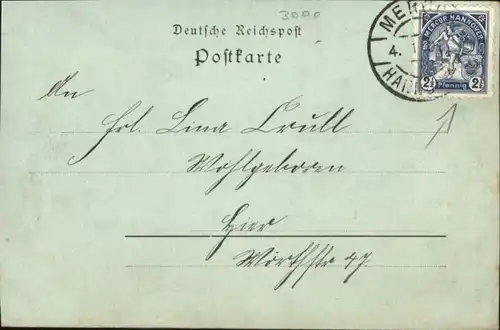 3000
Deutsche Reichspost
Postkarte
MERCUR HANNOVER
2½ Pfennig 2½
4.
An
Frl. Lina Crull
Wohlgeboren
Hier
Wörthstr 47.